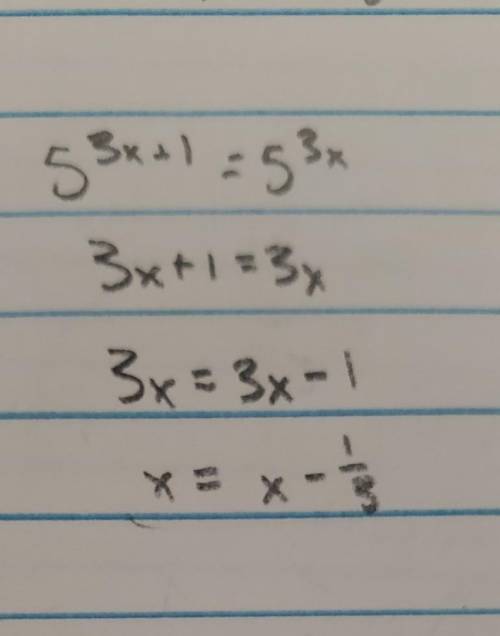 5^{3x+1} = 5^{3x}
3x + 1 = 3x
3x = 3x - 1
x = x - 1/3